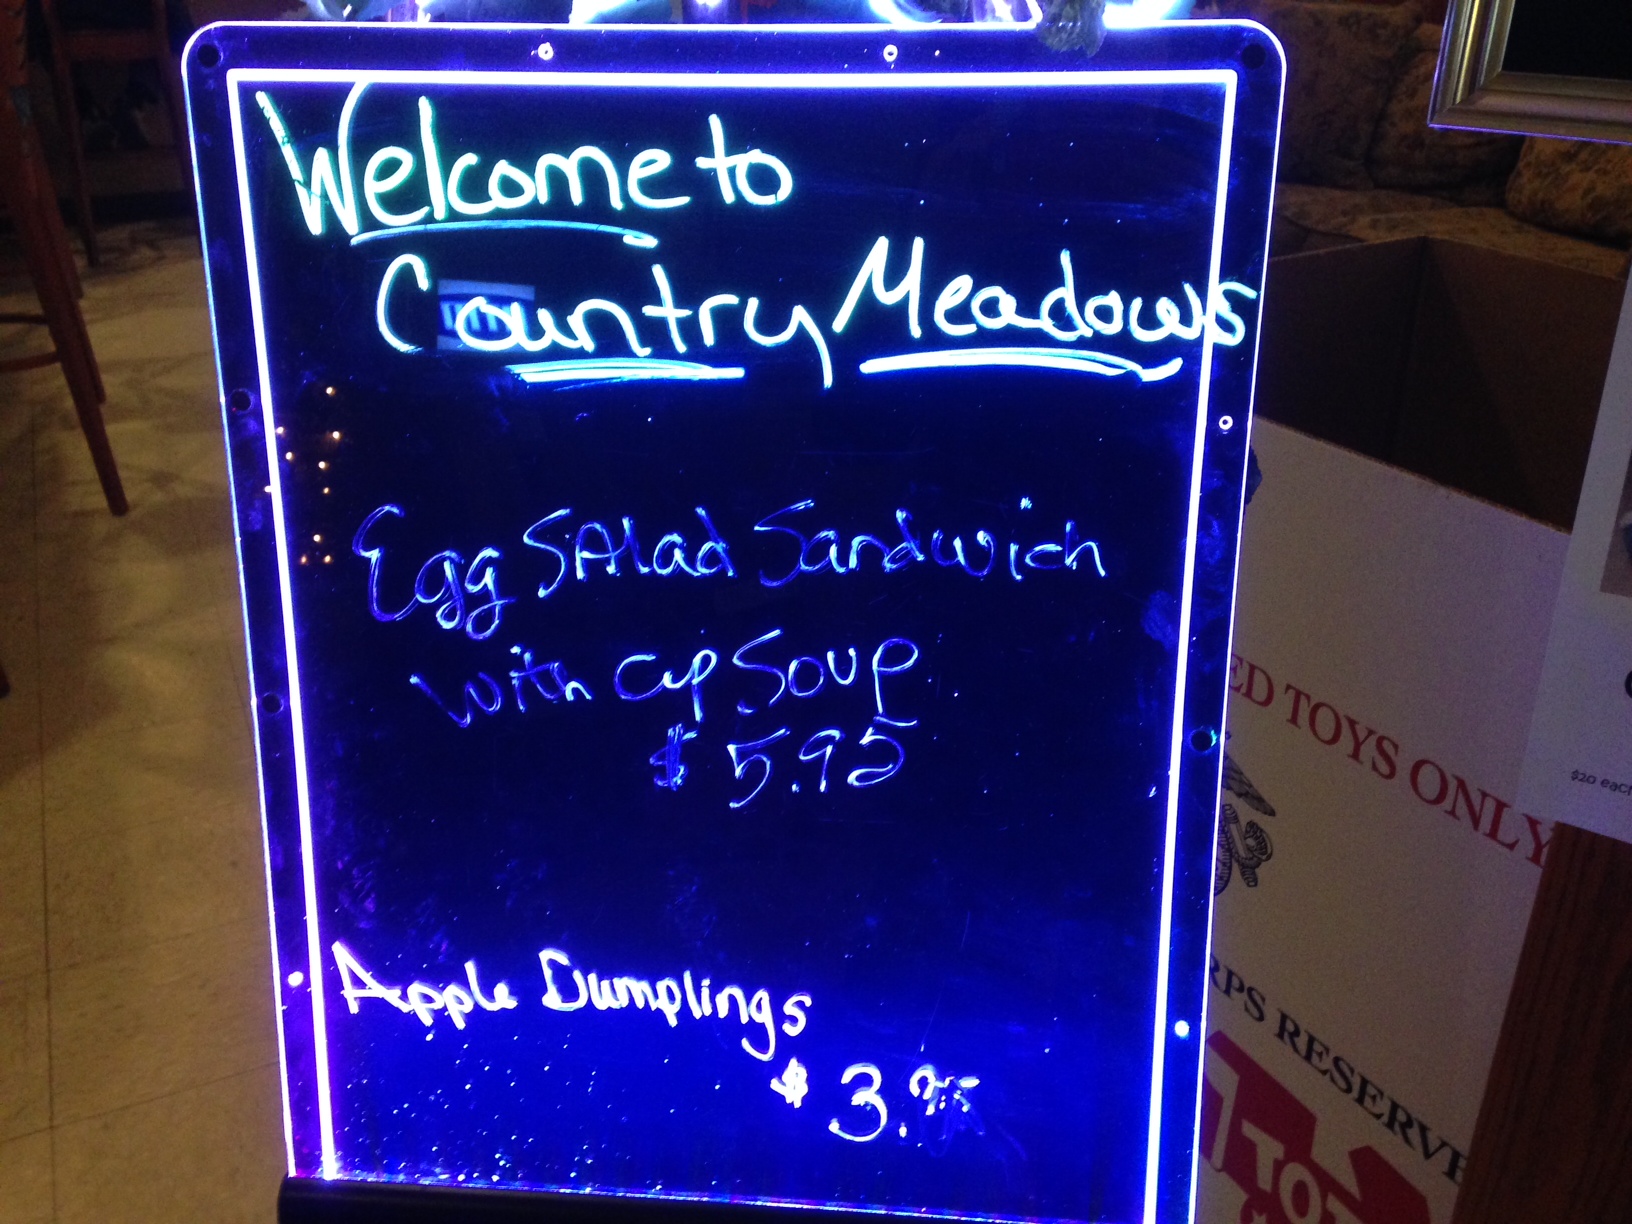 Welcome to
Country Meadows
Egg Salad Sandwich
with cup Soup
$5.95
Apple Dumplings
$3.95
ED TOYS ONLY
RPS RESERVE
TOY
$20 each